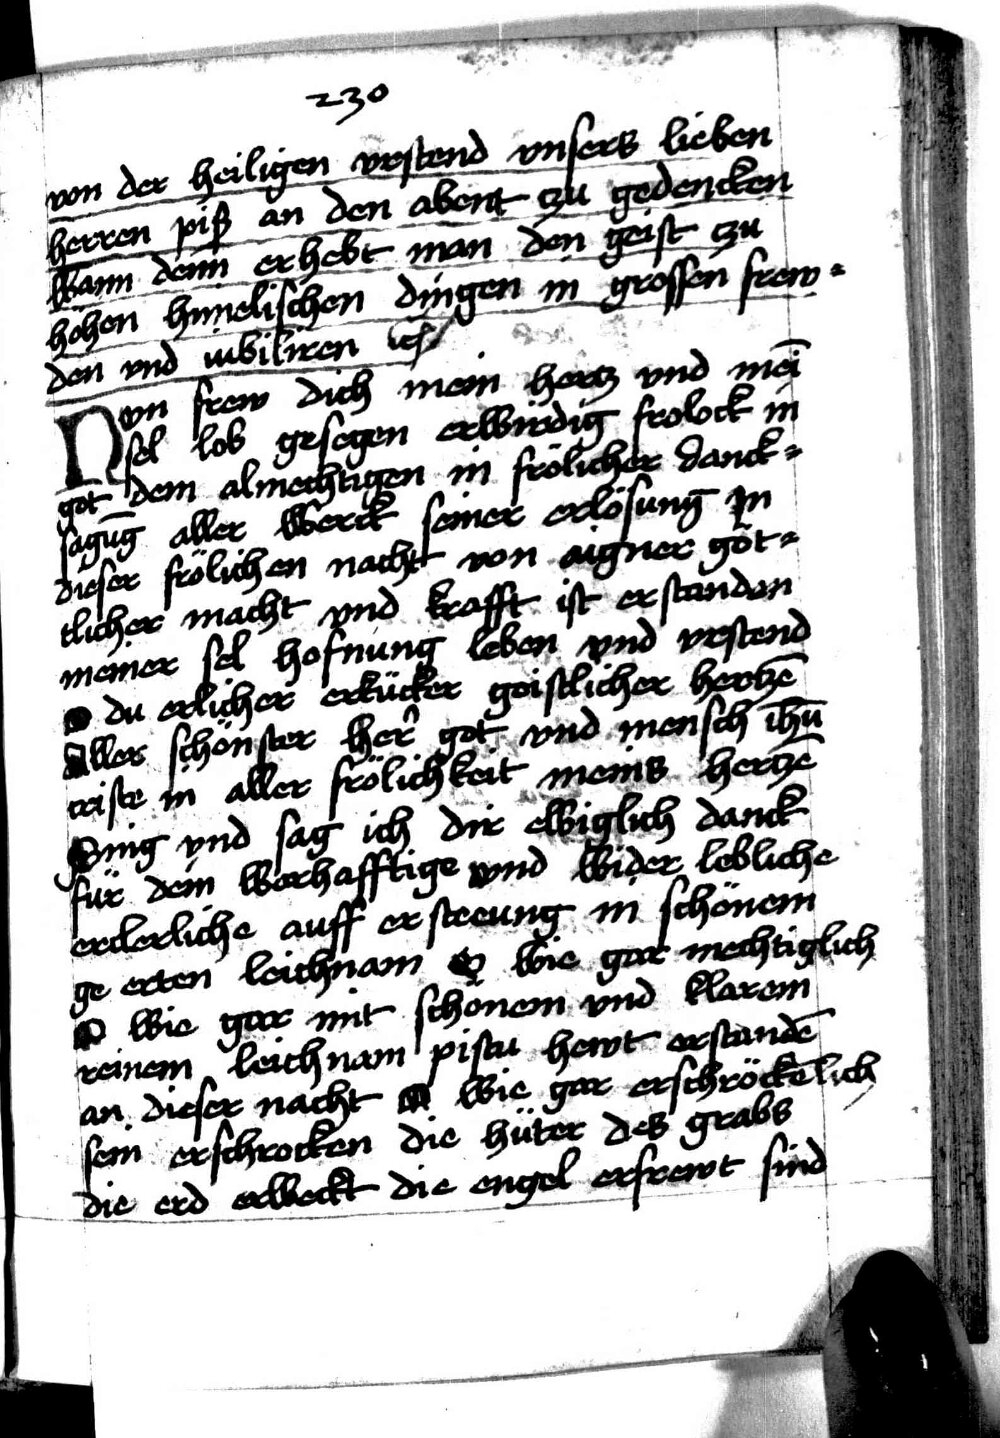 230
von der heiligen vrstend vnsers lieben
herren piß an den abent zu gedencken
Wann denn erhebt man den geist zu
höhen himelischen dingen in grossen frew=
den vnd iubiliren
Nvn frew dich mein hertz vnd mei͂
sel lob gesegen erwirdig frolock in
got dem almechtigen in frölicher danck=
sagu͂g aller werck seiner erlösung In
dieser frölichen nacht von aigner göt=
tlicher macht vnd krafft ist erstandan
meiner sel hofnung leben vnd vrstend
O du erlicher erkücker geistlicher hertze͂
Aller schönster her͂ got vnd mensch ih͂u
criste in aller frölichkeit meins hertze͂
Sing vnd sag ich dir ewiglich danck
für dein warhafftige vnd wider lebliche
erclerliche auff ersteeung in schönem
ge erten leichnam O wie gar mechtiglich
O wie gar mit schönem vnd klarem
reinem leichnam pistu hewt erstande͂
an dieser nacht O wie gar erschröcke͂lich
sein erschrocken die hüter des grabs
die erd erweckt die engel erfrewt sind